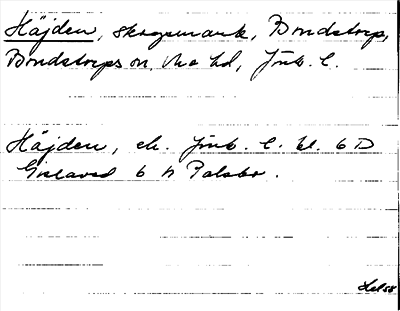 Häjden, skogsmark, Bondstorp,
Bondstorps sn, Mo hd, Jönk. l.
Häjden, ek. Jönk. l. bl. 6 D
Gislaved 6 h Palsbo.